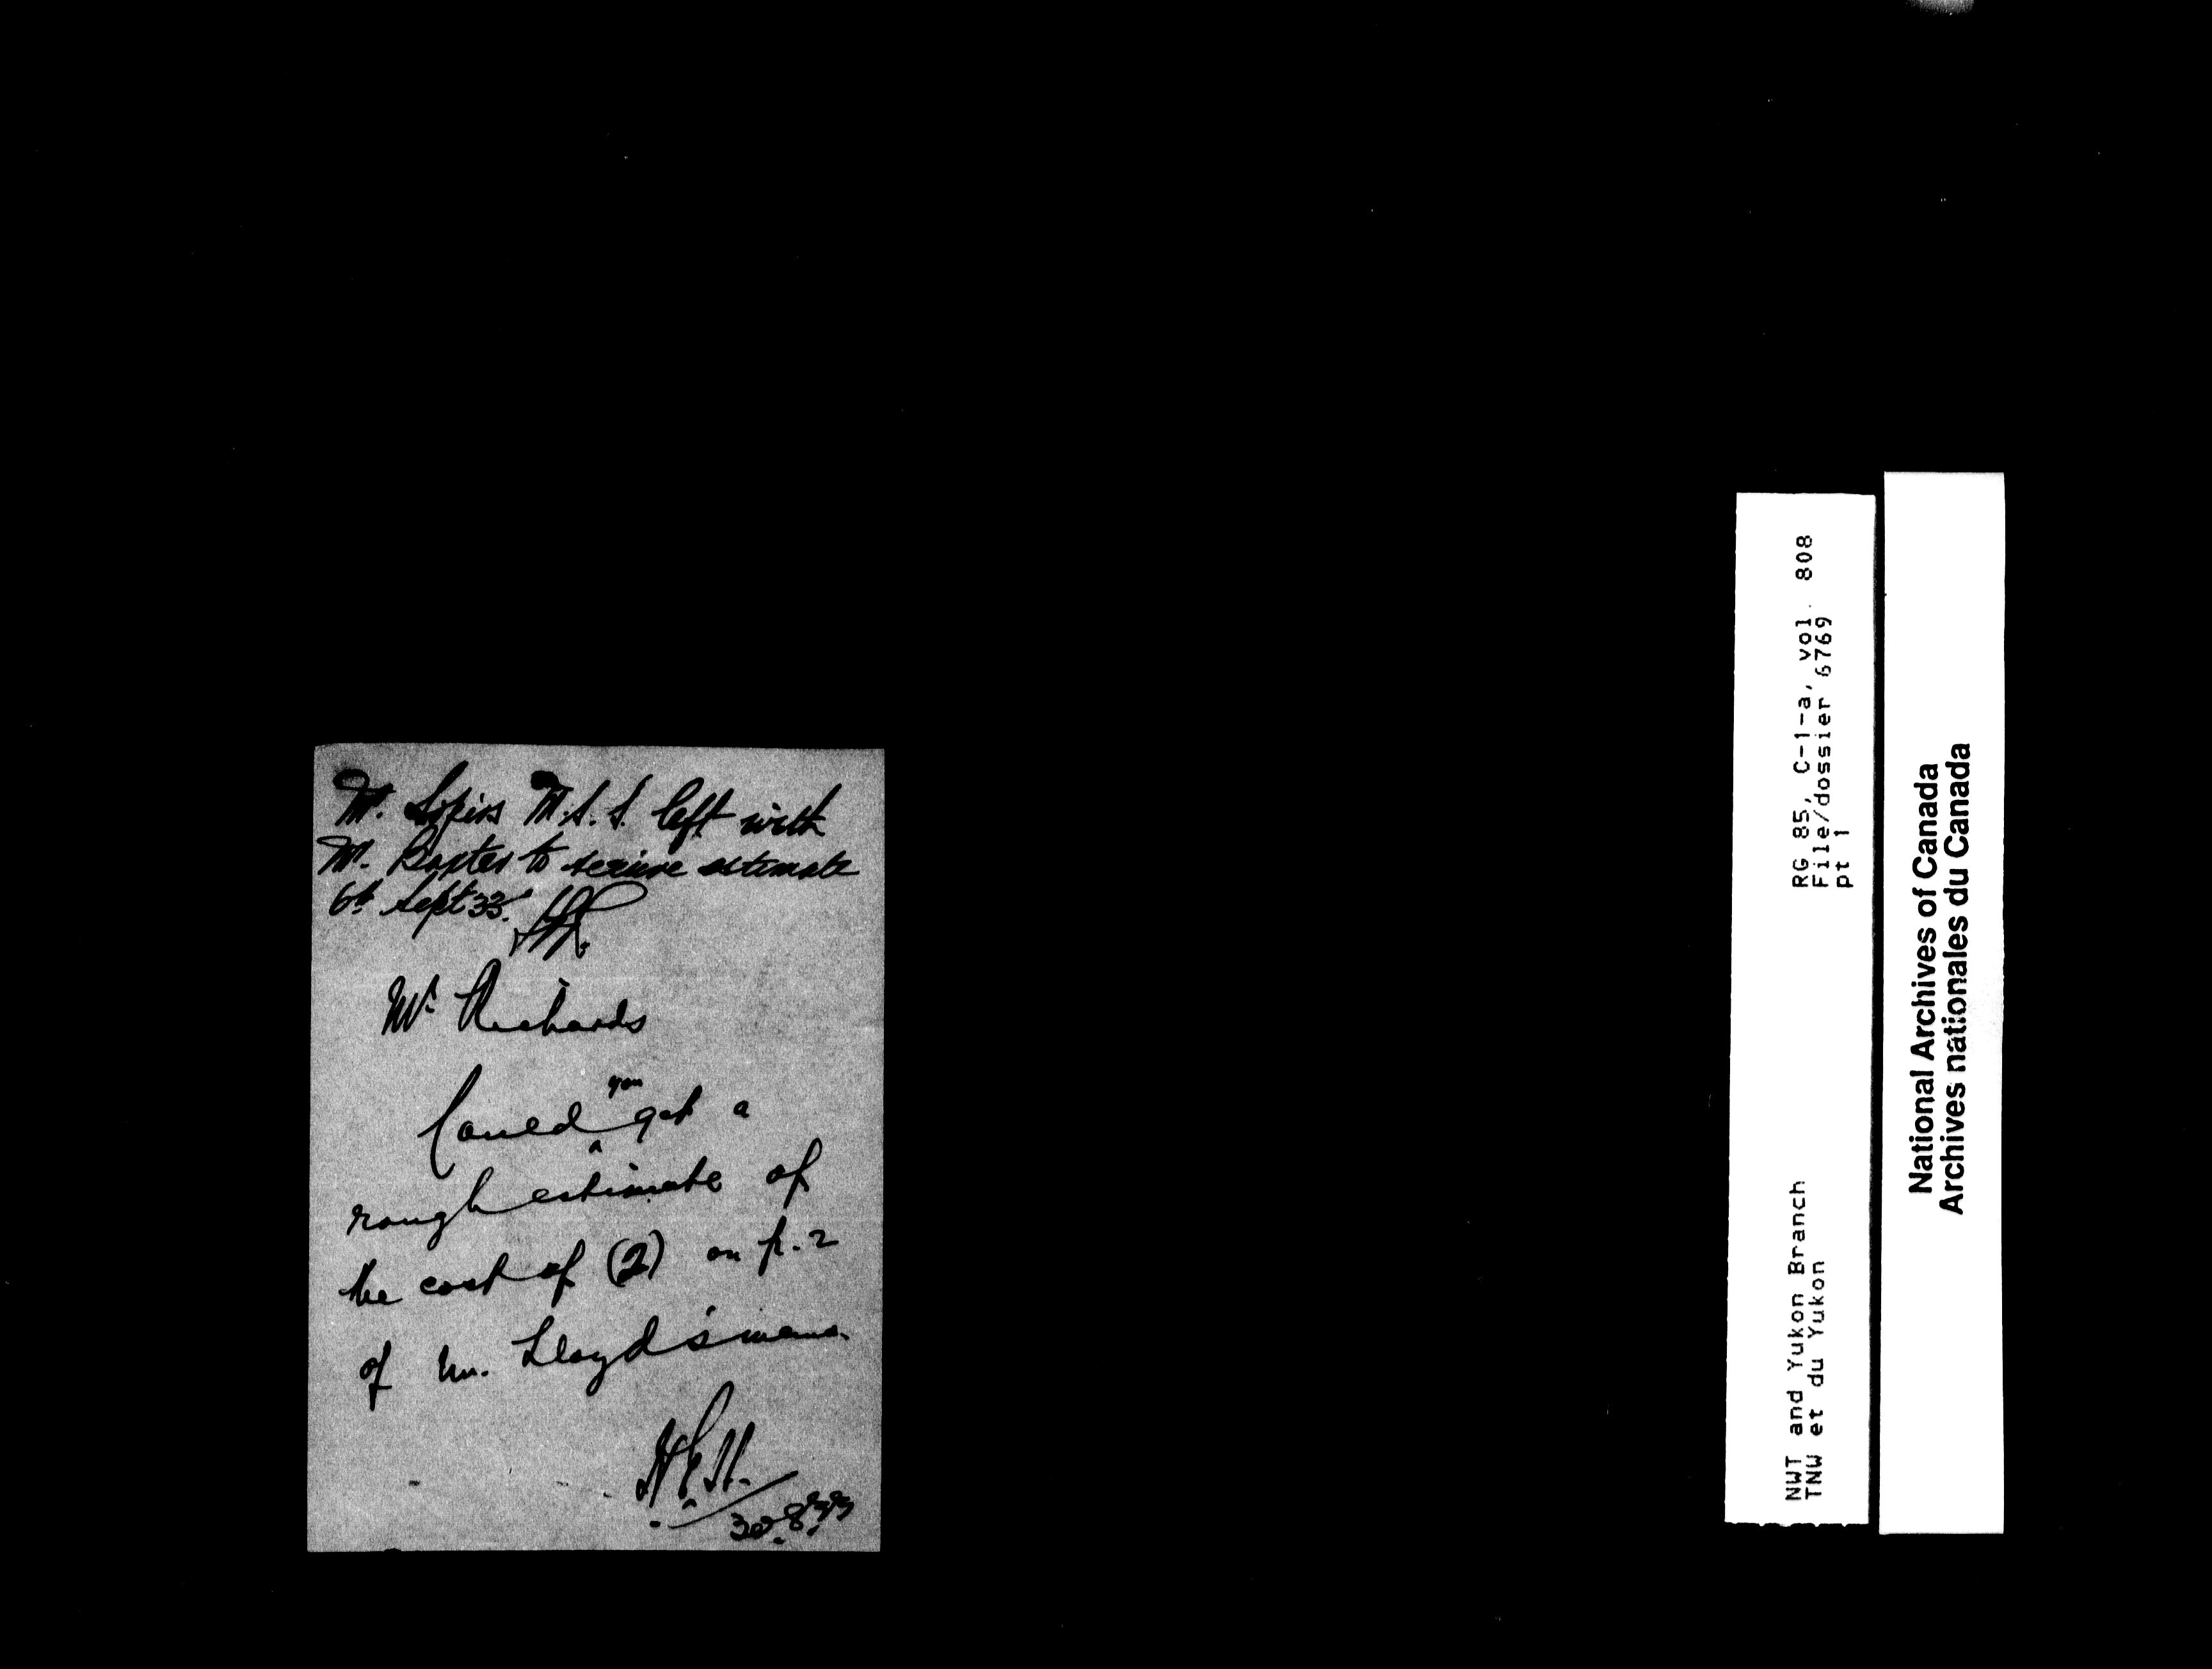 Mr. M.S.S. left with
Mr. Baxter to secure estimate
6th Sept 33.
Mr. Richards
Could you get a
rough estimate of
the cost of (2) on p. 2
of Mr. Lloyd's memo.
30.8.33
RG 85, C-1-a, vol. 808
File/dossier 6769
pt 1
NWT and Yukon Branch
TNW et du Yukon
National Archives of Canada
Archives nationales du Canada